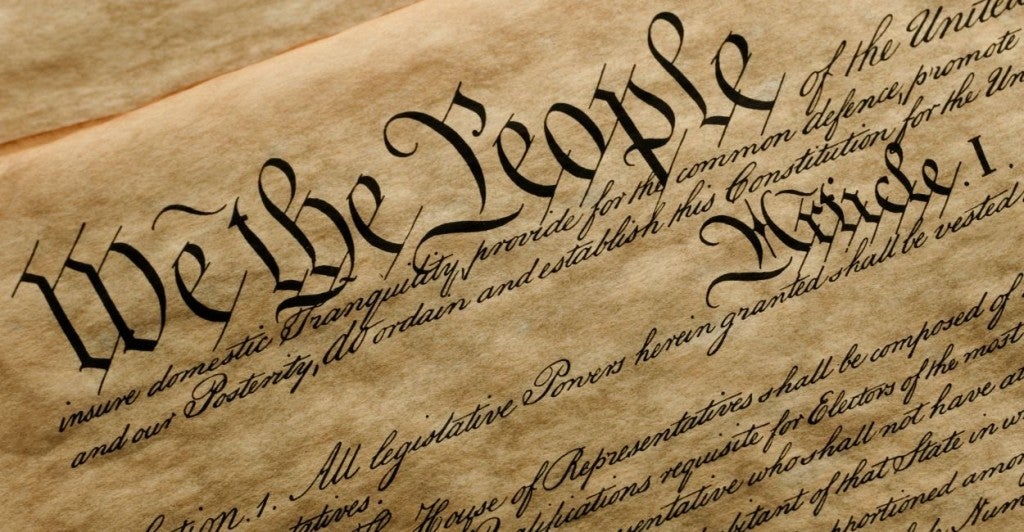 We the People of the United
insure domestic Tranquility, provide for the common defence, promote
and our Posterity, do ordain and establish this Constitution for the Un
Article. I.
tion. 1. All legislative Powers herein granted shall be vested
tatives.
House of Representatives shall be composed of
alifications requisite for Electors of the most
entative who shall not have at
bitant of that State in w
portioned amon
Num